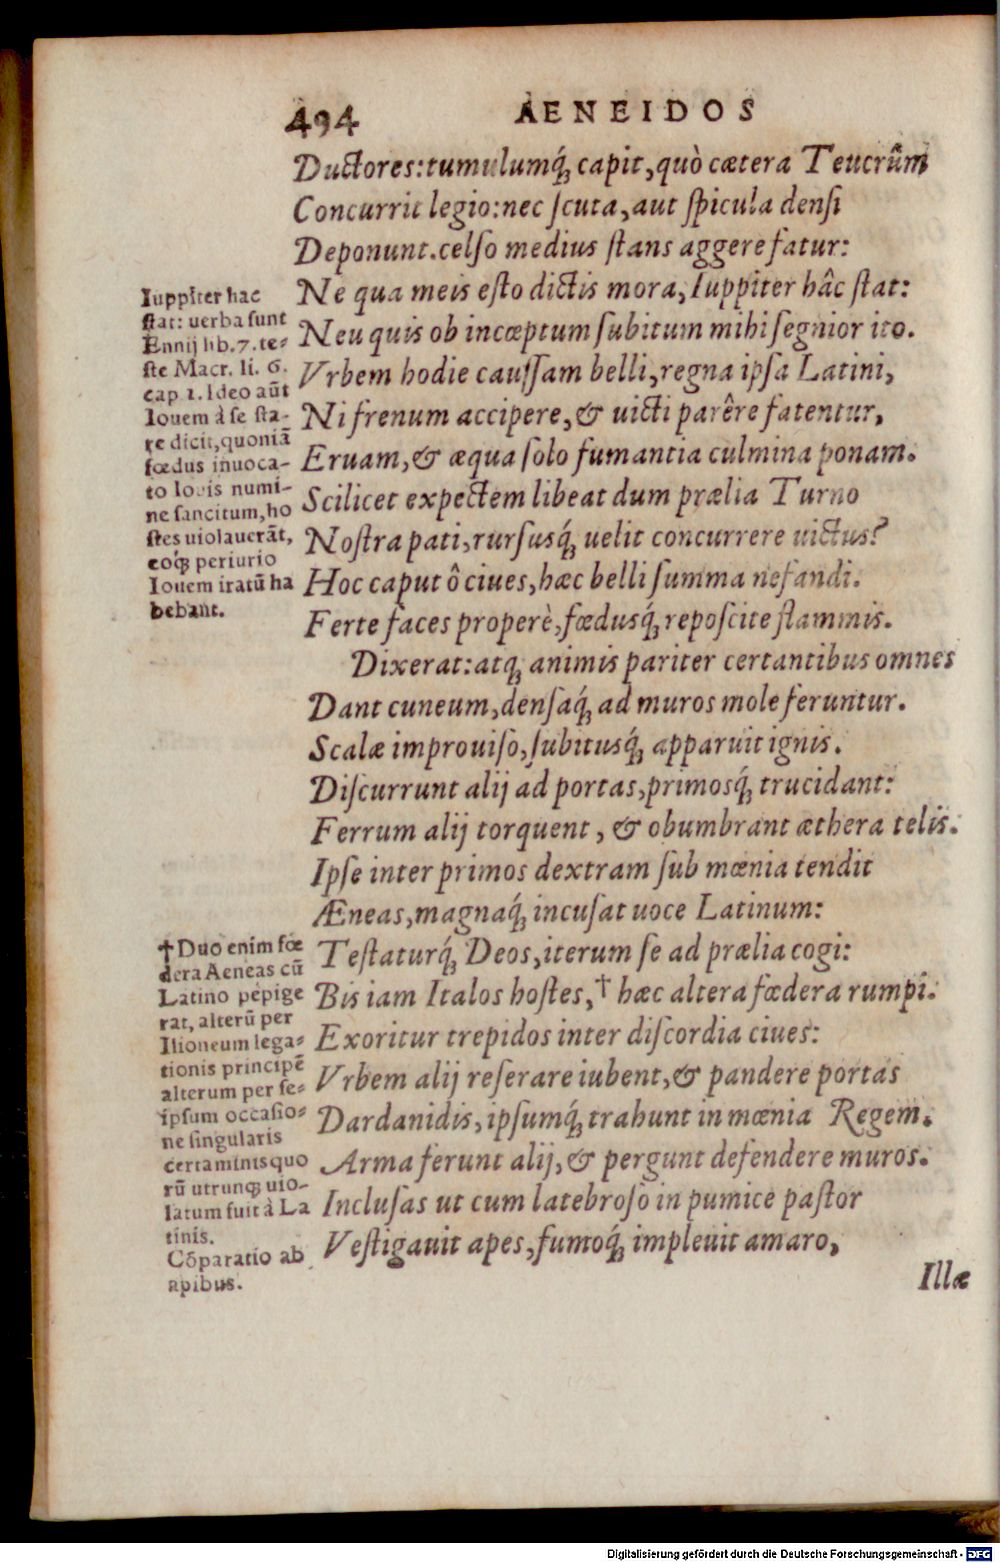 494 AENEIDOS
Ductores: tumulumq́; capit, quò cætera Teucrûm
Concurrit legio: nec scuta, aut spicula densi
Deponunt. celso medius stans aggere fatur:
Ne qua meis esto dictis mora, Iuppiter hâc stat:
Neu quis ob incœptum subitum mihi segnior ito.
Vrbem hodie caussam belli, regna ipsa Latini,
Ni frenum accipere, & uicti parêre fatentur,
Eruam, & æqua solo fumantia culmina ponam.
Scilicet expectem libeat dum prælia Turno
Nostra pati, rursusq́; uelit concurrere uictus?
Hoc caput ô ciues, hæc belli summa nefandi.
Ferte faces properè, fœdusq́; reposcite flammis.
Dixerat: atq; animis pariter certantibus omnes
Dant cuneum, densaq́; ad muros mole feruntur.
Scalæ improuiso, subitusq́; apparuit ignis.
Discurrunt alij ad portas, primosq́; trucidant:
Ferrum alij torquent, & obumbrant æthera telis.
Ipse inter primos dextram sub mœnia tendit
Æneas, magnaq́; incusat uoce Latinum:
Testaturq́; Deos, iterum se ad prælia cogi:
Bis iam Italos hostes, † hæc altera fœdera rumpi.
Exoritur trepidos inter discordia ciues:
Vrbem alij reserare iubent, & pandere portas
Dardanidis, ipsumq́; trahunt in mœnia Regem.
Arma ferunt alij, & pergunt defendere muros.
Inclusas ut cum latebroso in pumice pastor
Vestigauit apes, fumoq́; impleuit amaro,
Illæ
Iuppiter hac
stat: uerba sunt
Ennij lib. 7. te-
ste Macr. li. 6.
cap 1. Ideo aūt
Iouem à se sta-
re dicit, quoniā
fœdus inuoca-
to Iouis numi-
ne sancitum, ho
stes uiolauerāt,
eoq́; periurio
Iouem iratū ha
bebant.
† Duo enim fœ
dera Aeneas cū
Latino pepige
rat, alterū per
Ilioneum lega-
tionis principē
alterum per se-
ipsum occasio-
ne singularis
certaminis quo
rū utrunq; uio-
latum fuit à La
tinis.
Cōparatio ab
apibus.
Digitalisierung gefördert durch die Deutsche Forschungsgemeinschaft - DFG